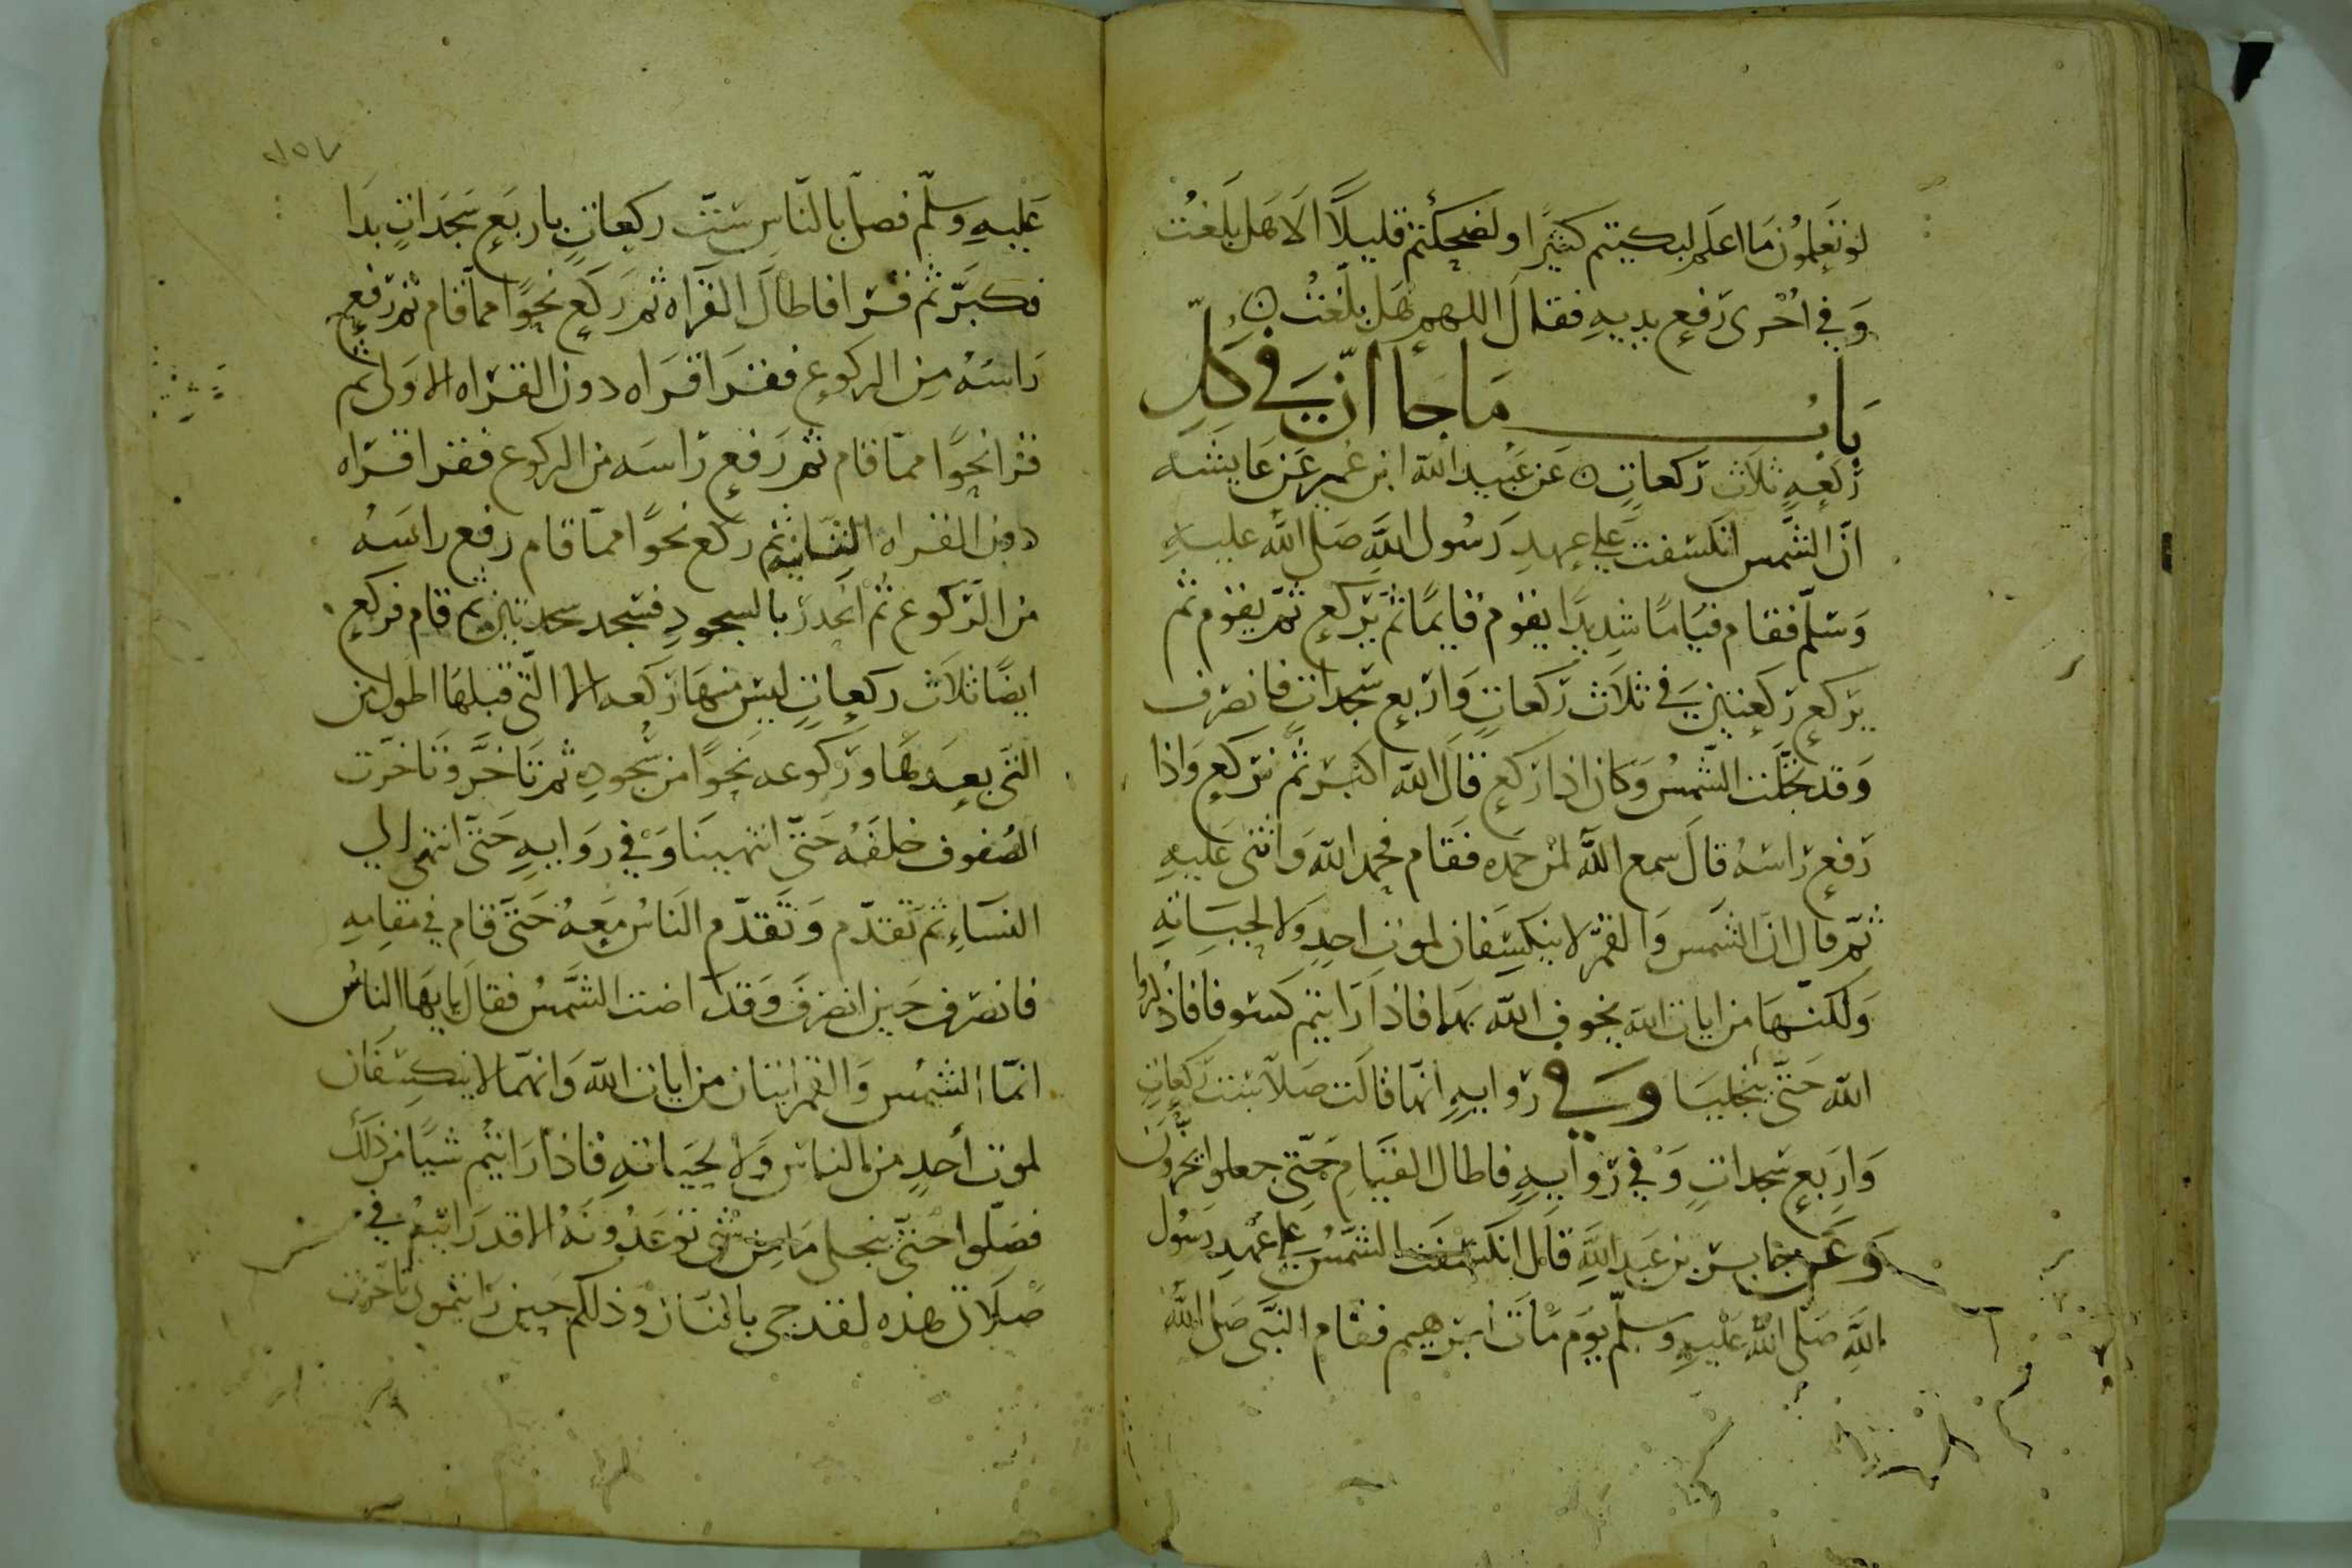 لو تَعلمُون مَا اعلَم لبكيتم كثيرًا ولضحكتم قليلًا الَا هَل بَلغتُ
وَفي اخْرى رَفع يديهِ فقال اللهم هَل بلّغتُ ن
بَابُ مَا جَا انّ في كُلِّ
رَكعهٍ ثلاث رَكعاتٍ ن عَن عُبيد الله ابن عُمير عَن عَايشه
انّ الشمس انكسَفت علي عهدِ رَسُول اللهِ صَلى الله عليهِ
وَسَلّم فقام قيَامًا شدِيدًا يقوم قايمًا ثم يَركع ثم يقوم ثم
يَركع رَكعتين في ثلاث رَكعاتٍ وَاربع سَجداتٍ فانصَرف
وَقد تجَلّت الشّمسُ وَكان اذا رَكع قال الله اكبر ثم يَركع وَاذا
رَفع رَاسَهُ قالَ سمع الله لمن حمده فقَام فحمد الله وَاثنى عَليهِ
ثمّ قال انّ الشَمس وَالقمَر لا ينكسَفان لموت احدٍ وَلا لحيَاتهِ
وَلكنّهَا من ايات الله يخوف الله بهَا فاذا رَايتم كسوفا فاذكروا
الله حَتّى ينجليَا وَفي رَوايهِ انهَا قالَت صَلا ستّ رَكعاتٍ
وَاربع سَجداتٍ وَفي رَوايهٍ فاطال القيَام حَتّى جعلوا يخرّونَ
وَعَن جَابر بن عَبد اللهِ قال انكسَفت الشمسُ علي عَهدِ رَسُول
اللهِ صَلى اللهُ عَليهِ وسلّم يَومَ مَاتَ ابرَهيم فقام النَبّى صَلى الله
٢٥٧
عَليهِ وسلّم فصلّا بالنّاسِ سَتّ ركعاتٍ باربَع سَجَداتٍ بدَا
فكبّر ثم قرَا فاطالَ القرَاه ثم رَكع نحوًا مما قام ثم رَفع
رَاسَهُ مِن الركوع فقرَا قرَاه دون القرَاه الاوَلى ثم
قرا نحوًا ممّا قام ثم رَفع رَاسَه من الركوع فقرا قرَاه
دون القراه الثانيه ثم ركع نحوًا ممّا قام رَفع راسَهُ
من الرّكوع ثم انحدرَ بالسجودِ فسَجد سجدتين ثم قام فركع
ايضًا ثلاث ركعاتٍ ليس منهَا رَكعه الا التّى قبلهَا اطول من
التّى بعدهَا ورَكوعه نحوًا من سُجودهِ ثم تَاخّر وتَاخّرت
الصُفوف خلفَهُ حَتّى انتهينَا وَفي رَوايهِ حَتّى انتهى الي
النسَاءِ ثم تقدّم وَتَقدّم النَاسُ مَعهُ حَتّى قام في مقامِهِ
فانصَرف حَين انصَرفَ وَقد اضت الشَّمسُ فقالَ يايهَا الناسُ
انمّا الشمس وَالقمر ايتان من ايات الله وَانهمَا لا ينكسَفَان
لموت أحدٍ من الناس وَلا لحيَاتهِ فاذا رَايتم شيًا من ذلك
فصَلّوا حتّى ينجلى مَا من شى توعَدُونَهُ الا قد رَايتهُ في
صَلاتى هذه لقد جى بالنّار وذلكم حين رَايتمونى تَاخّرت